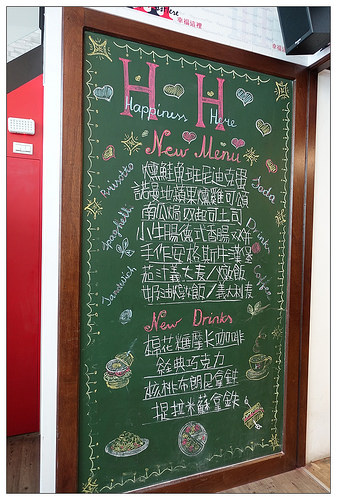 幸福這裡
H H
Happiness Here
New Menu
燻鮭魚班尼迪克蛋
諾曼地蘋果燻雞可頌
南瓜焗烤起司吐司
小牛腸德式香腸
手作安格斯牛漢堡
義大麥/燉飯
奶油燉飯/義大利麥
Risotto
Spaghetti
Sandwich
Soda
Drinks
Coffee
New Drinks
棉花糖摩卡咖啡
經典巧克力
核桃布朗尼拿鐵
提拉米蘇拿鐵